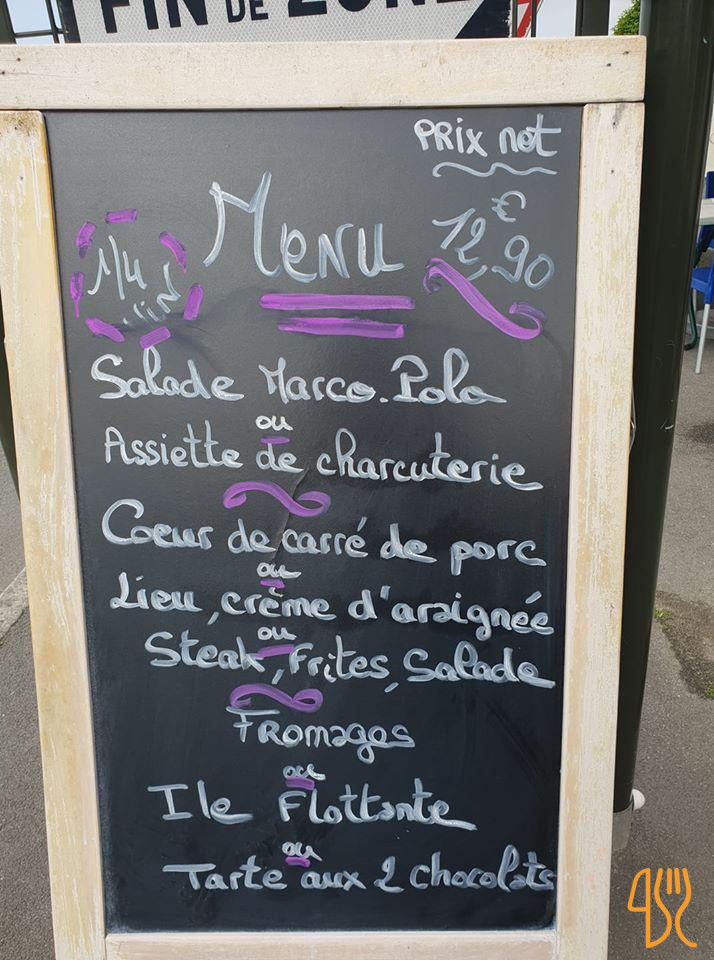 FIN DE ZONE
PRix net
Menu
12,90 €
1/4
vin
Salade Marco.Polo
ou
Assiette de charcuterie
Coeur de carré de porc
ou
Lieu, crème d'araignée
ou
Steak, Frites, Salade
Fromages
ou
Ile Flottante
ou
Tarte aux 2 chocolats